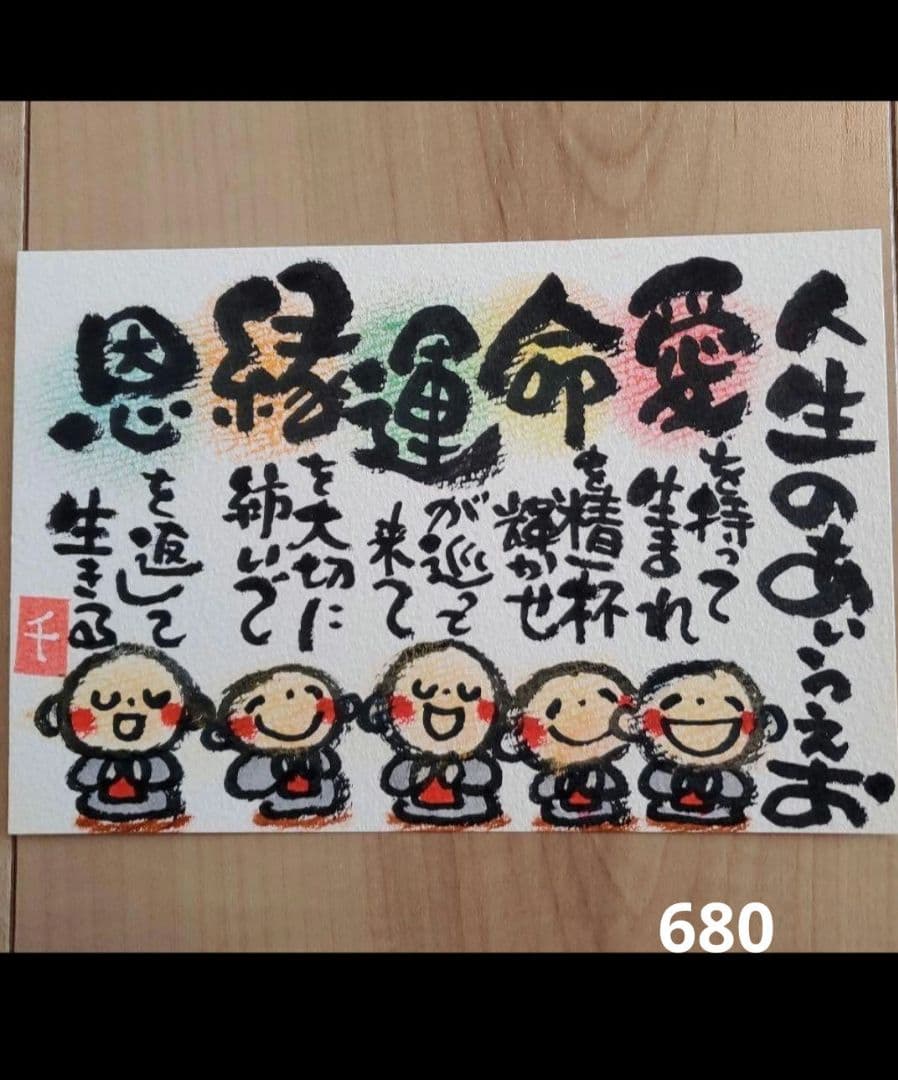 人生のあいうえお
愛を持って
生まれ
命を精一杯
輝かせ
運が巡って
来て
縁を大切に
紡いで
恩を返して
生きる
千
680